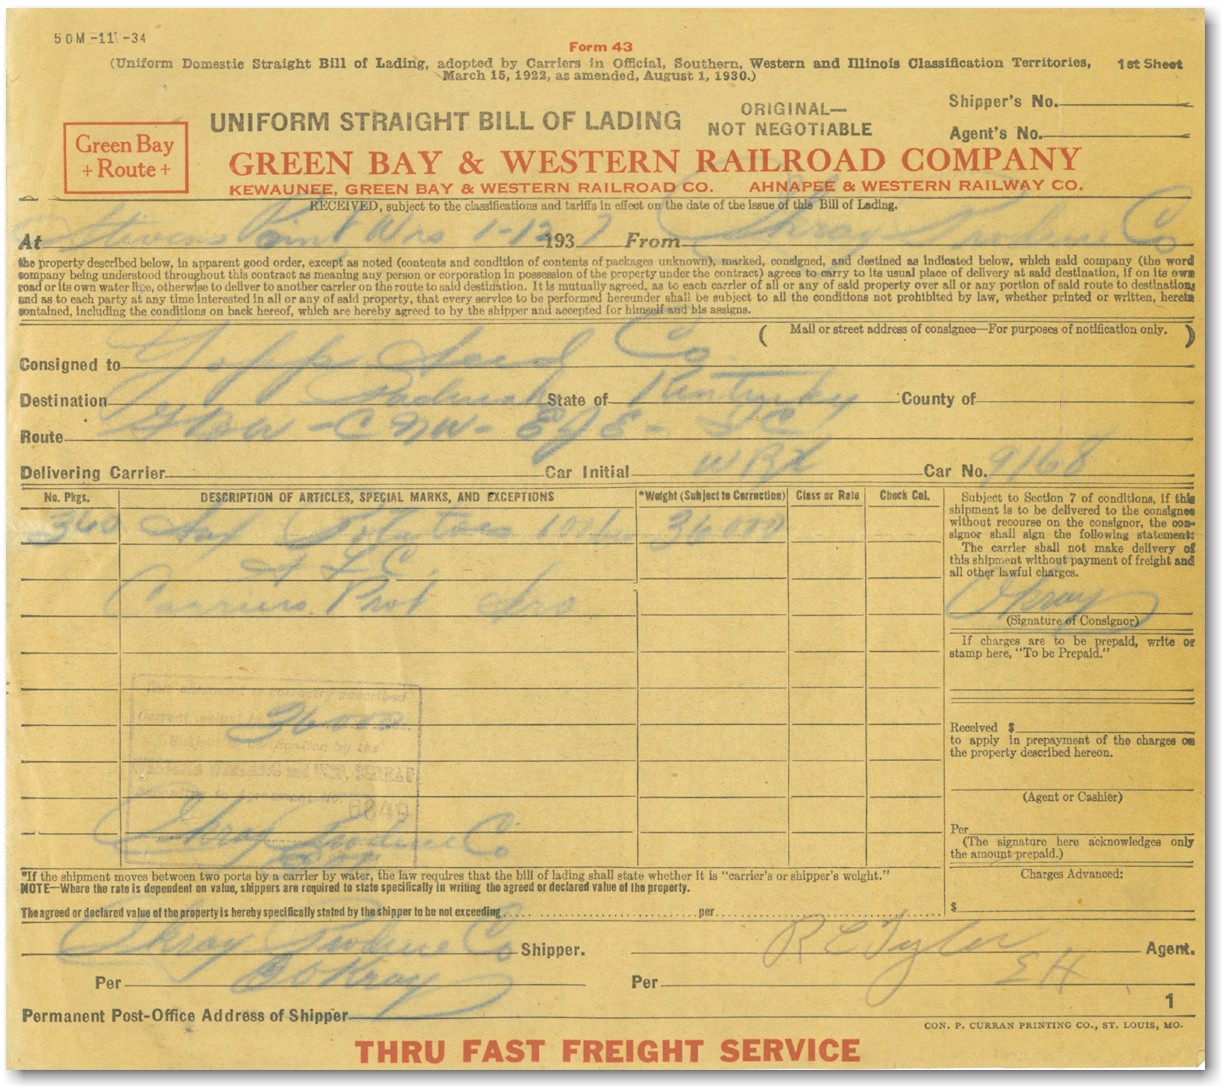 50M-11-34
Form 43
(Uniform Domestic Straight Bill of Lading, adopted by Carriers in Official, Southern, Western and Illinois Classification Territories,
March 15, 1922, as amended, August 1, 1930.)
1st Sheet
Shipper's No.
UNIFORM STRAIGHT BILL OF LADING
ORIGINAL—
NOT NEGOTIABLE
Agent's No.
Green Bay
+ Route +
GREEN BAY & WESTERN RAILROAD COMPANY
KEWAUNEE, GREEN BAY & WESTERN RAILROAD CO. AHNAPEE & WESTERN RAILWAY CO.
RECEIVED, subject to the classifications and tariffs in effect on the date of the issue of this Bill of Lading.
At Stevens Point Wis 1-12 1937 From Okray Produce Co
the property described below, in apparent good order, except as noted (contents and condition of contents of packages unknown), marked, consigned, and destined as indicated below, which said company (the word
company being understood throughout this contract as meaning any person or corporation in possession of the property under the contract) agrees to carry to its usual place of delivery at said destination, if on its own
road or its own water line, otherwise to deliver to another carrier on the route to said destination. It is mutually agreed, as to each carrier of all or any of said property over all or any portion of said route to destination,
and as to each party at any time interested in all or any of said property, that every service to be performed hereunder shall be subject to all the conditions not prohibited by law, whether printed or written, herein
contained, including the conditions on back hereof, which are hereby agreed to by the shipper and accepted for himself and his assigns.
( Mail or street address of consignee—For purposes of notification only. )
Consigned to Yopp Seed Co
Destination Paducah State of Kentucky County of
Route GB&W - CNW - EJE - IC
Delivering Carrier Car Initial WRX Car No. 9168
No. Pkgs. DESCRIPTION OF ARTICLES, SPECIAL MARKS, AND EXCEPTIONS *Weight (Subject to Correction) Class or Rate Check Col.
360 Sax Potatoes 36000
Carriers Prot
36000
Okray Produce Co
Subject to Section 7 of conditions, if this
shipment is to be delivered to the consignee
without recourse on the consignor, the con-
signor shall sign the following statement:
The carrier shall not make delivery of
this shipment without payment of freight and
all other lawful charges.
Okray
(Signature of Consignor)
If charges are to be prepaid, write or
stamp here, "To be Prepaid."
Received $
to apply in prepayment of the charges on
the property described hereon.
(Agent or Cashier)
Per
(The signature here acknowledges only
the amount prepaid.)
Charges Advanced:
$
*If the shipment moves between two ports by a carrier by water, the law requires that the bill of lading shall state whether it is "carrier's or shipper's weight."
NOTE—Where the rate is dependent on value, shippers are required to state specifically in writing the agreed or declared value of the property.
The agreed or declared value of the property is hereby specifically stated by the shipper to be not exceeding per
Okray Produce Co Shipper. R E Tyler Agent.
Per Okray Per EH
1
Permanent Post-Office Address of Shipper
CON. P. CURRAN PRINTING CO., ST. LOUIS, MO.
THRU FAST FREIGHT SERVICE